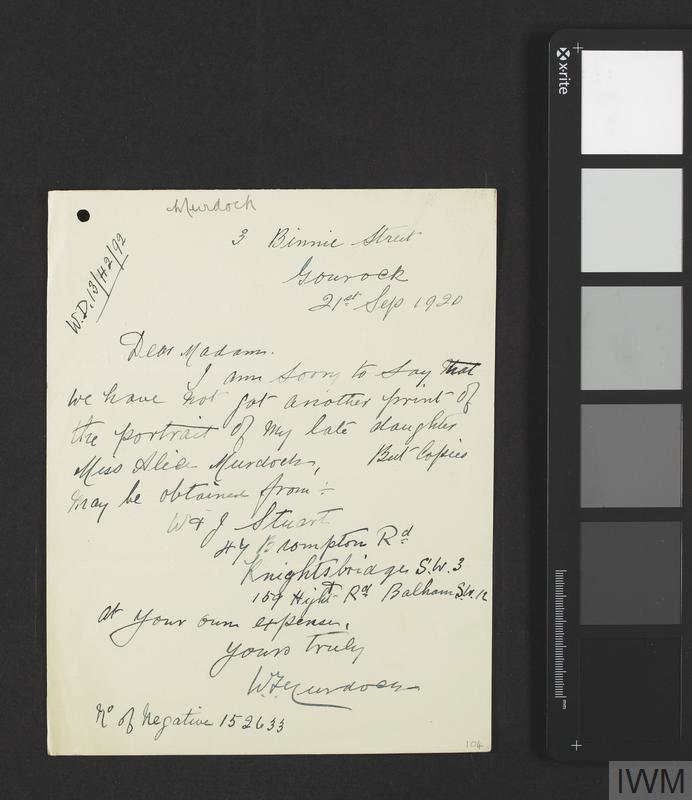 Murdoch
W.D. 13/42/92
3 Binnie Street
Gourock
21st Sep 1920
Dear Madam.
I am sorry to say that
we have not got another print of
the portrait of my late daughter
Miss Alice Murdoch, But Copies
may be obtained from :-
W & J Stuart
47 Brompton Rd
Knightsbridge S.W. 3
159 Rd Balham S.W. 12
at your own expense.
Yours truly
W. Murdoch
No of Negative 152633
104
x-rite
mm
IWM